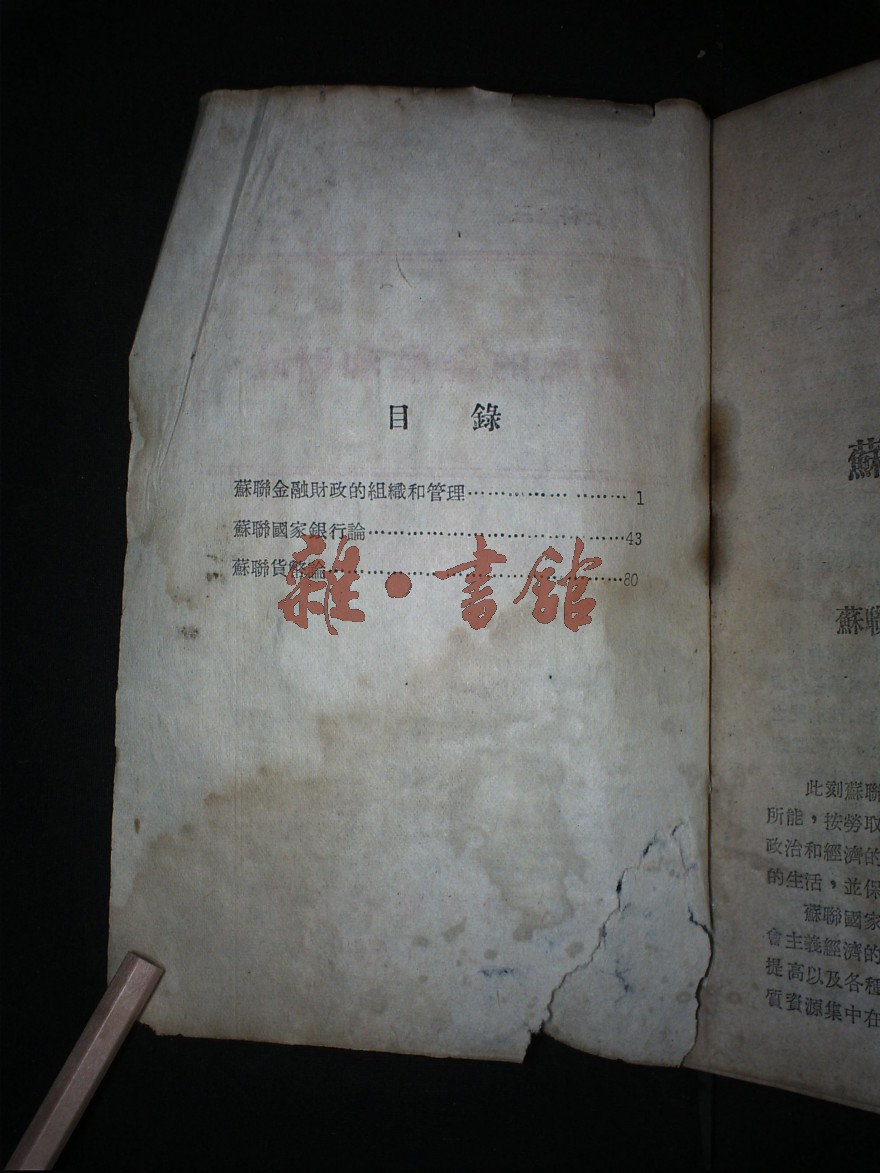 目 錄
蘇聯金融財政的組織和管理………………………1
蘇聯國家銀行論………………………………43
蘇聯貨幣論……………………………………80
雜·書館
蘇
蘇聯
此刻蘇聯
所能，按勞取
政治和經濟的
的生活，並保
蘇聯國家
會主義經濟的
提高以及各種
質資源集中在